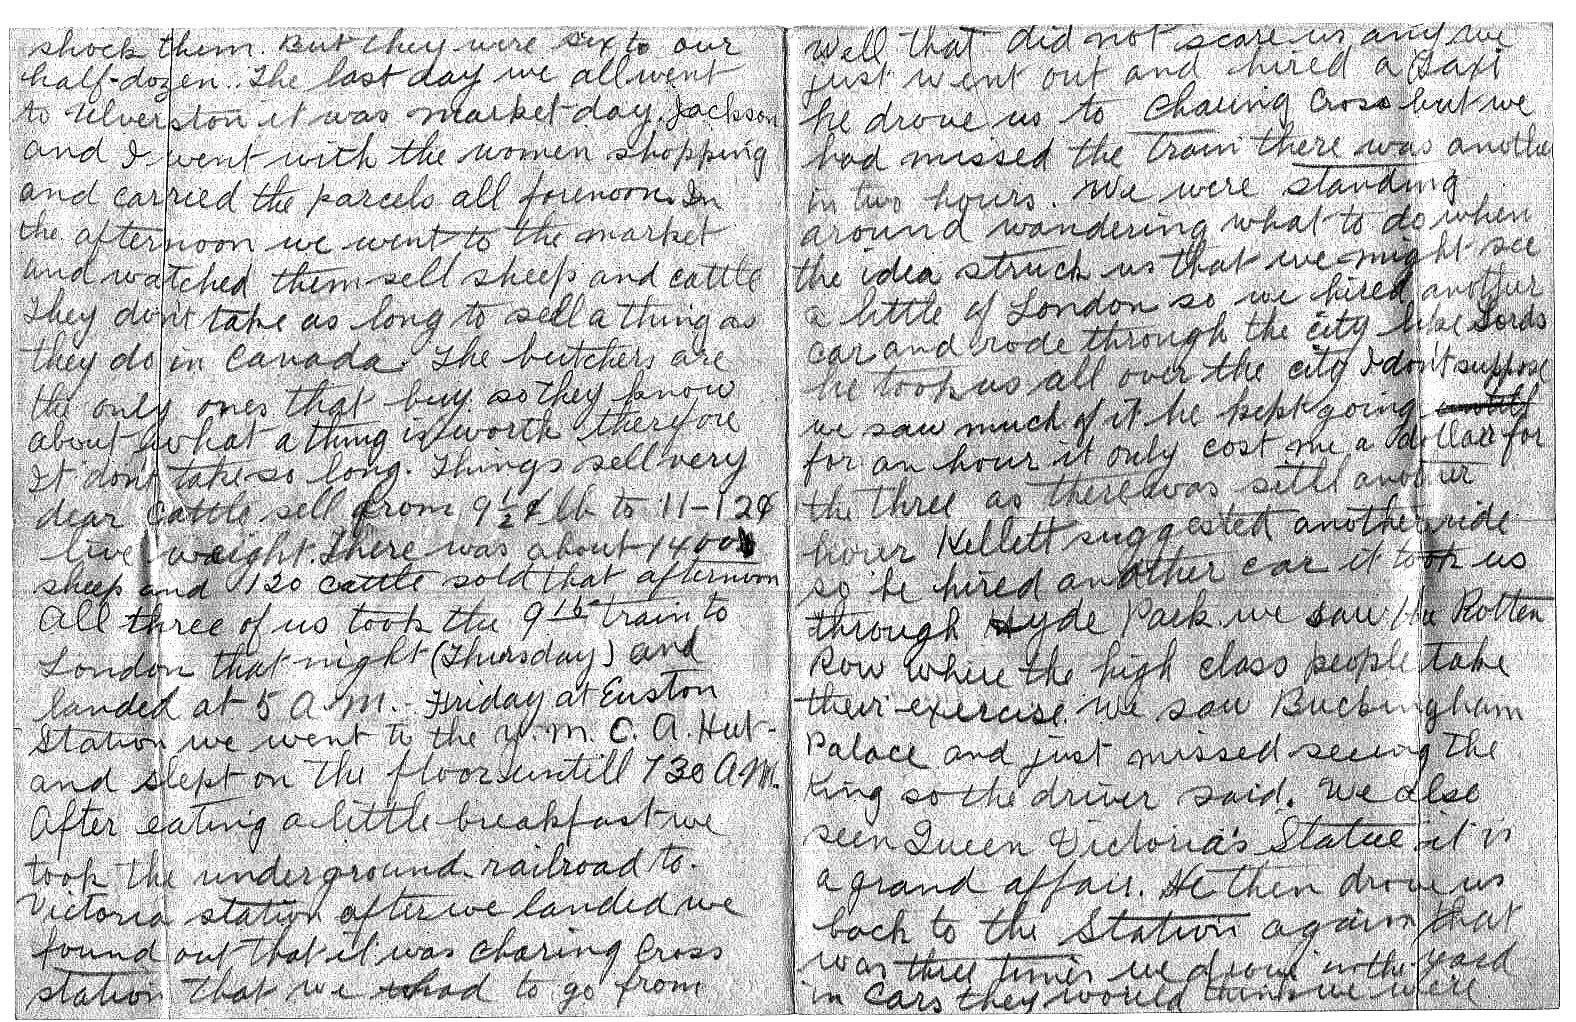 shock them. But they were six to our
half-dozen. The last day we all went
to Ulverston it was market day. Jackson
and I went with the women shopping
and carried the parcels all forenoon. In
the afternoon we went to the market
and watched them sell sheep and cattle
They don't take as long to sell a thing as
they do in Canada. The butchers are
the only ones that buy so they know
about what a thing is worth therefore
It dont take so long. Things sell very
dear cattle sell from 9½¢ lb to 11-12¢
live weight. There was about 1400
sheep and 120 cattle sold that afternoon
All three of us took the 9 15 train to
London that night (Thursday) and
landed at 5 A.M. Friday at Euston
Station we went to the Y.M.C.A. Hut-
and slept on the floor untill 730 A.M.
After eating a little breakfast we
took the underground railroad to
Victoria station after we landed we
found out that it was Charing Cross
station that we had to go from
Well that did not scare us any we
just went out and hired a Taxi
he drove us to Charing Cross but we
had missed the train there was another
in two hours. We were standing
around wandering what to do when
the idea struck us that we might see
a little of London so we hired another
car and rode through the city like Lords
he took us all over the city I don't suppose
we saw much of it he kept going
for an hour it only cost me a dollar for
the three as there was still another
hour Kellett suggested another ride
so he hired another car it took us
through Hyde Park we saw the Rotten
Row where the high class people take
their exercise. We saw Buckingham
Palace and just missed seeing the
King so the driver said. We also
seen Queen Victoria's Statue it is
a grand affair. He then drove us
back to the Station again that
was three times we drove in the yard
in cars they would think we were